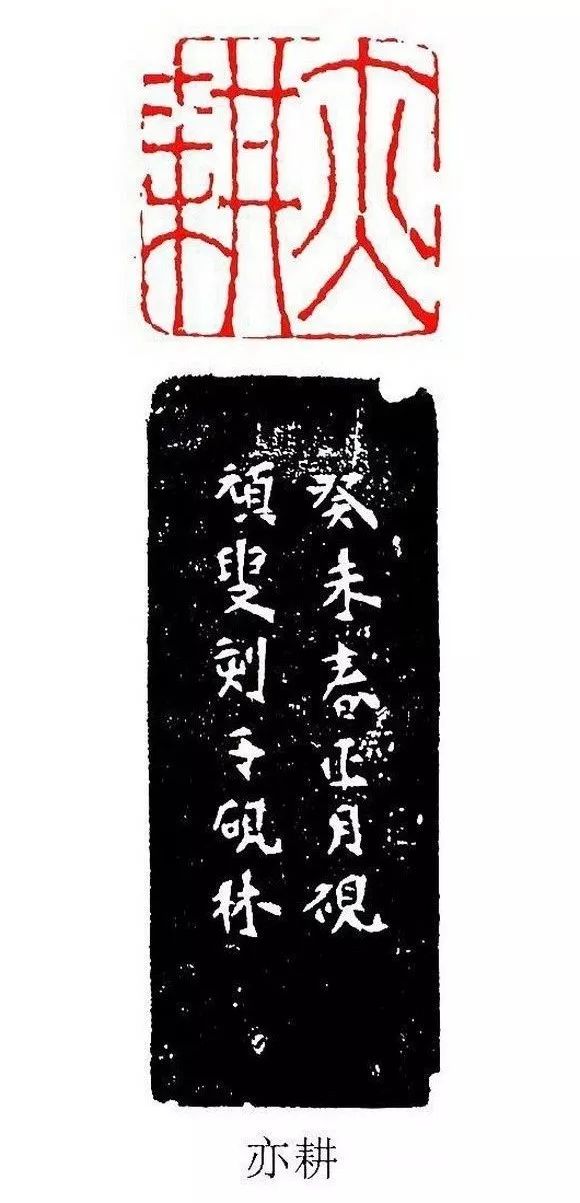 亦耕
癸未春正月視
禎叟刻于硯林
亦耕